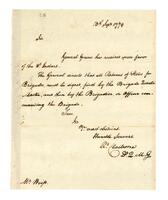 13th Sept. 1779
Sir
General Greene has received your favor
of the 8th Instant.
The General directs that all Returns of Stores for
Brigades must be signed first by the Brigade Quarter
Master, and then by the Brigadier, or Officer com-
manding the Brigade.
I am
Sir
Your most obedient
Humble Servant
D Q M G
Mr. Weiss.